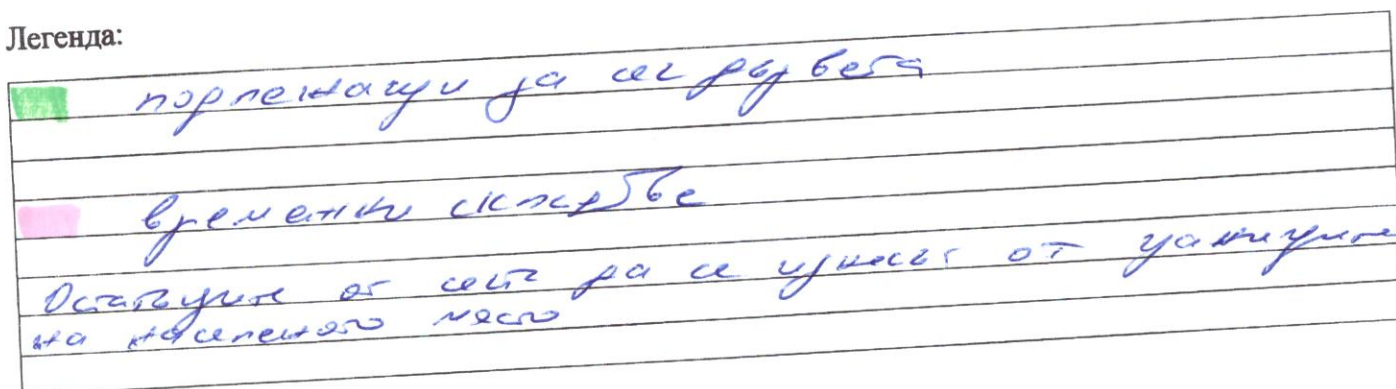 Легенда:
подлежащи за сеч дървета
временни складове
Остатъците от сечта да се изнесат от границите
на населеното място